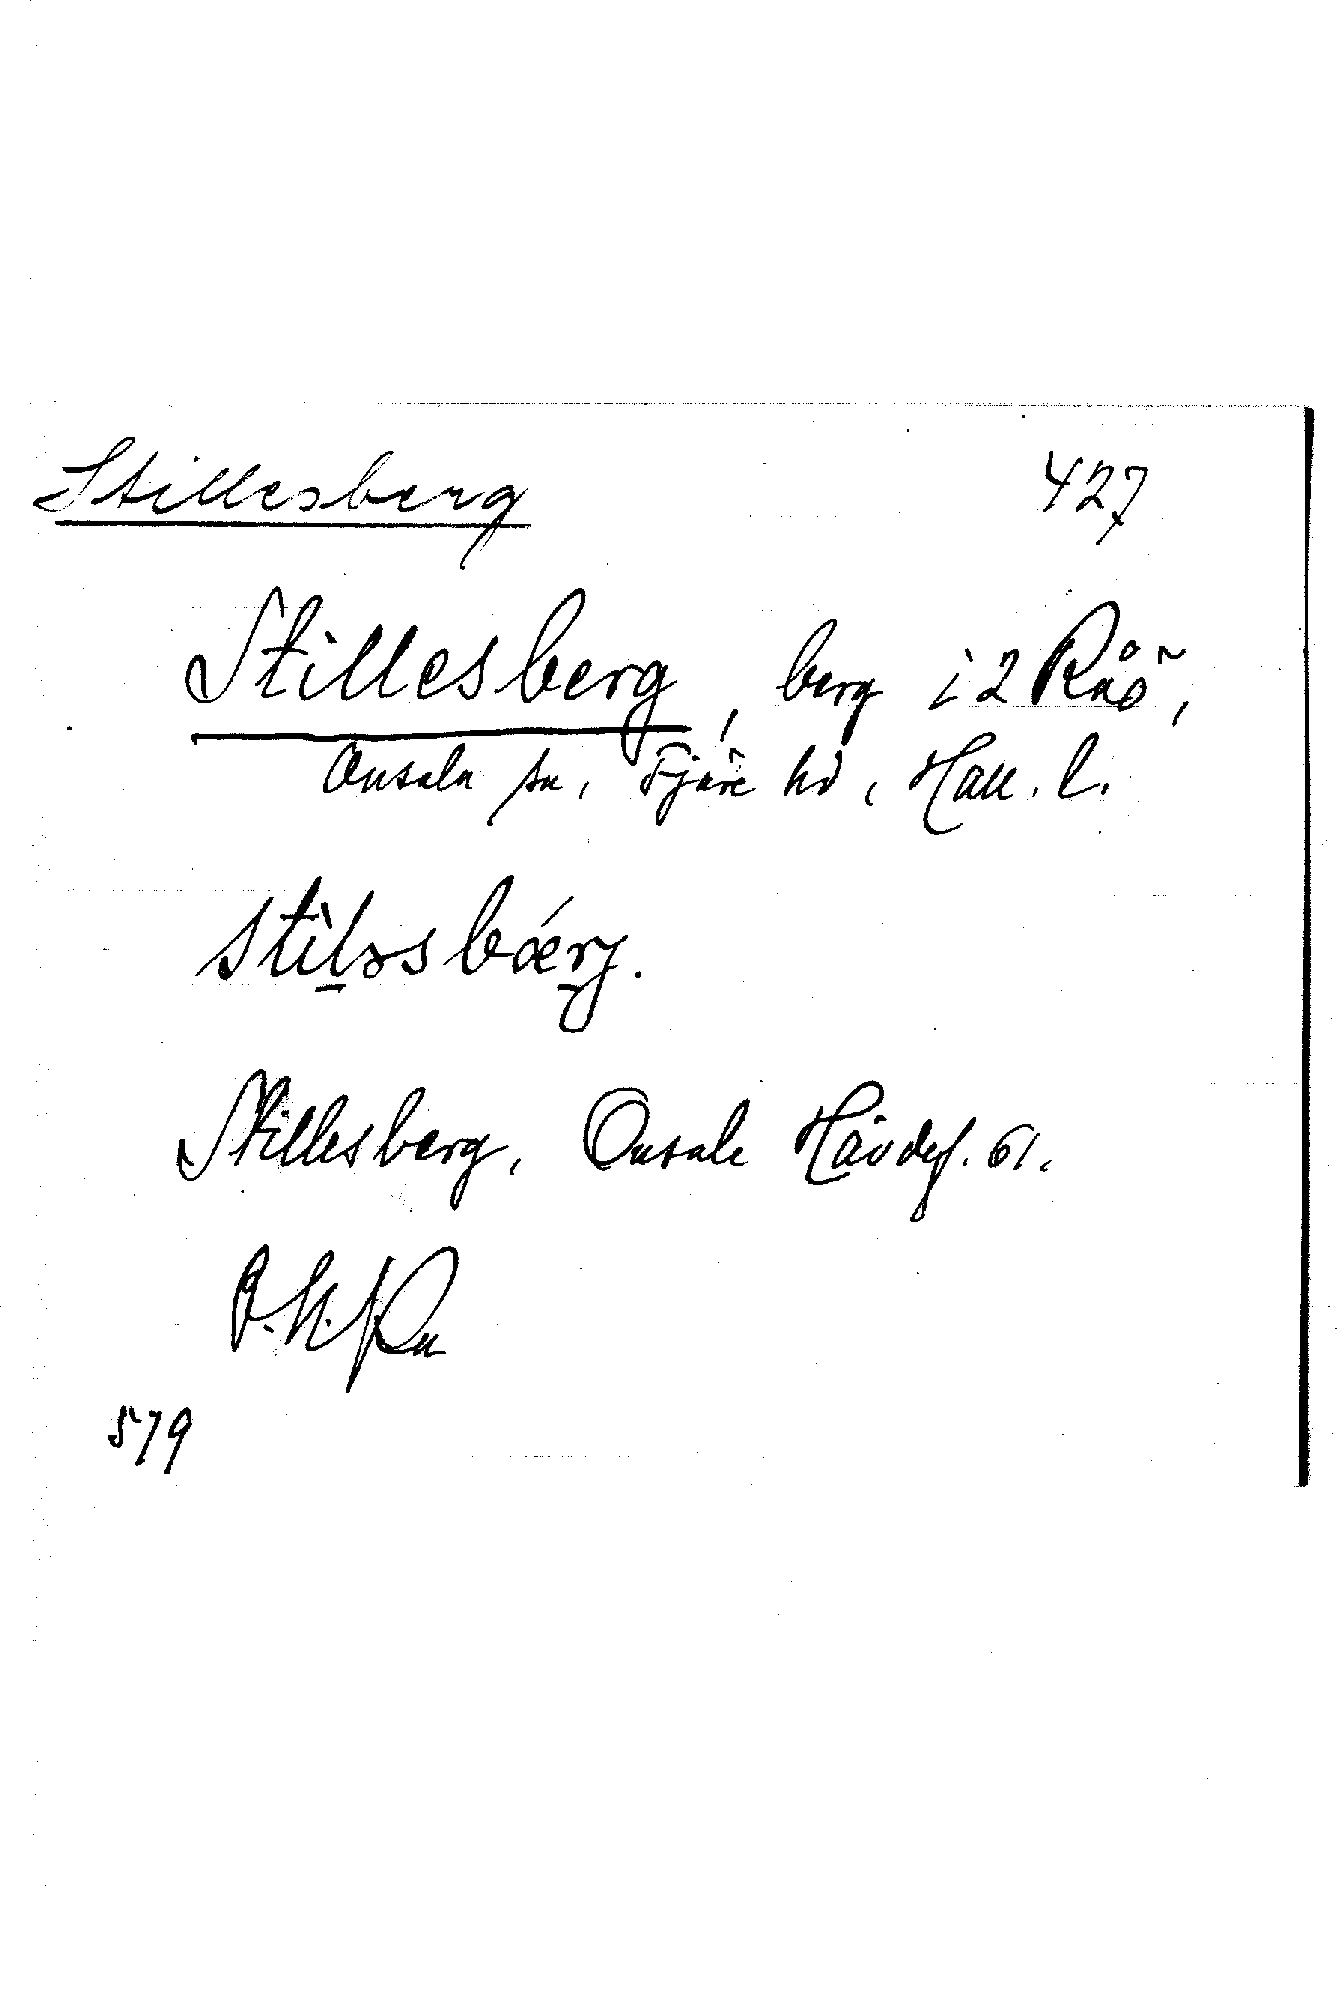 Stillesberg 427
Stillesberg, berg i 2 Råö,
Onsala sn, Fjäre hd, Hall. l.
stìləsbǽrj.
Stillesberg, Onsala Hävdef. 61.
579